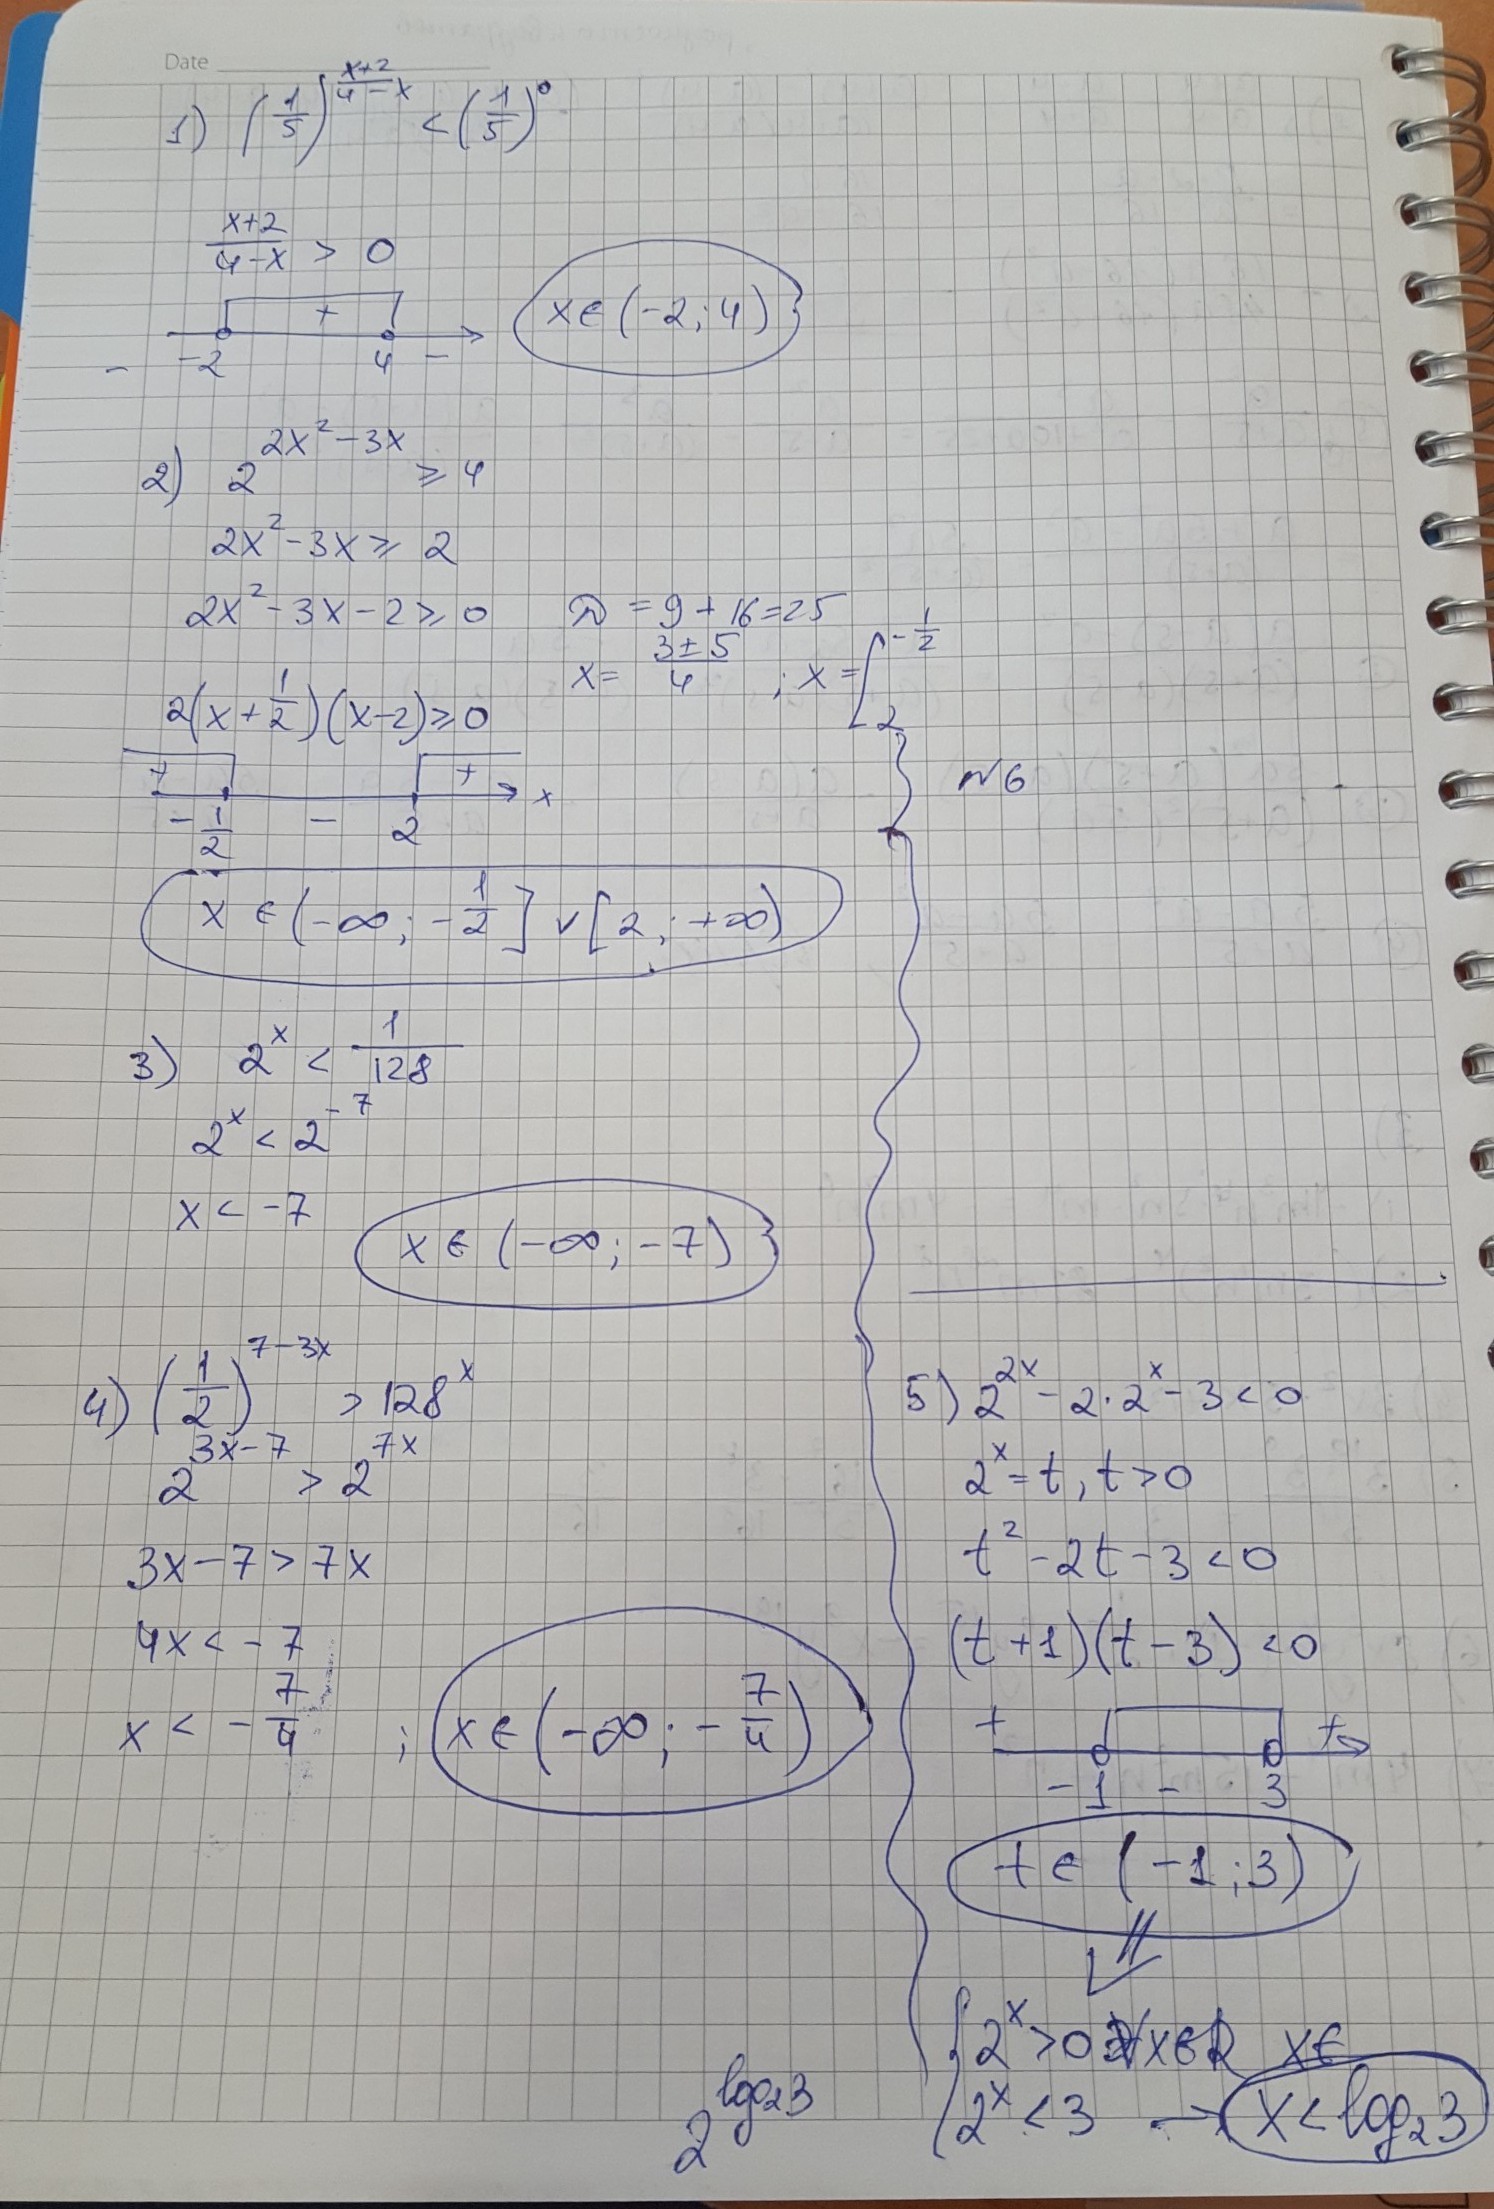 Date
1) (1/5)^((x+2)/(4-x)) < (1/5)^0
(x+2)/(4-x) > 0
+
- -2 4 -
x∈(-2; 4)
2) 2^(2x²-3x) ≥ 4
2x²-3x ≥ 2
2x²-3x-2 ≥ 0
D = 9+16=25
x = (3±5)/4 ; x = [ -1/2
2
2(x+1/2)(x-2) ≥ 0
+ + x
-1/2 - 2
x ∈ (-∞; -1/2] ∨ [2; +∞)
N6
3) 2^x < 1/128
2^x < 2^(-7)
x < -7
x ∈ (-∞; -7)
4) (1/2)^(7-3x) > 128^x
2^(3x-7) > 2^(7x)
3x-7 > 7x
4x < -7
x < -7/4 ; x∈(-∞; -7/4)
5) 2^(2x) - 2·2^x - 3 < 0
2^x = t, t > 0
t² - 2t - 3 < 0
(t+1)(t-3) < 0
+ t
-1 - 3
t ∈ (-1; 3)
{ 2^x > 0 ∀x∈R x∈
2^x < 3 → x < log₂3
2^(log₂3)